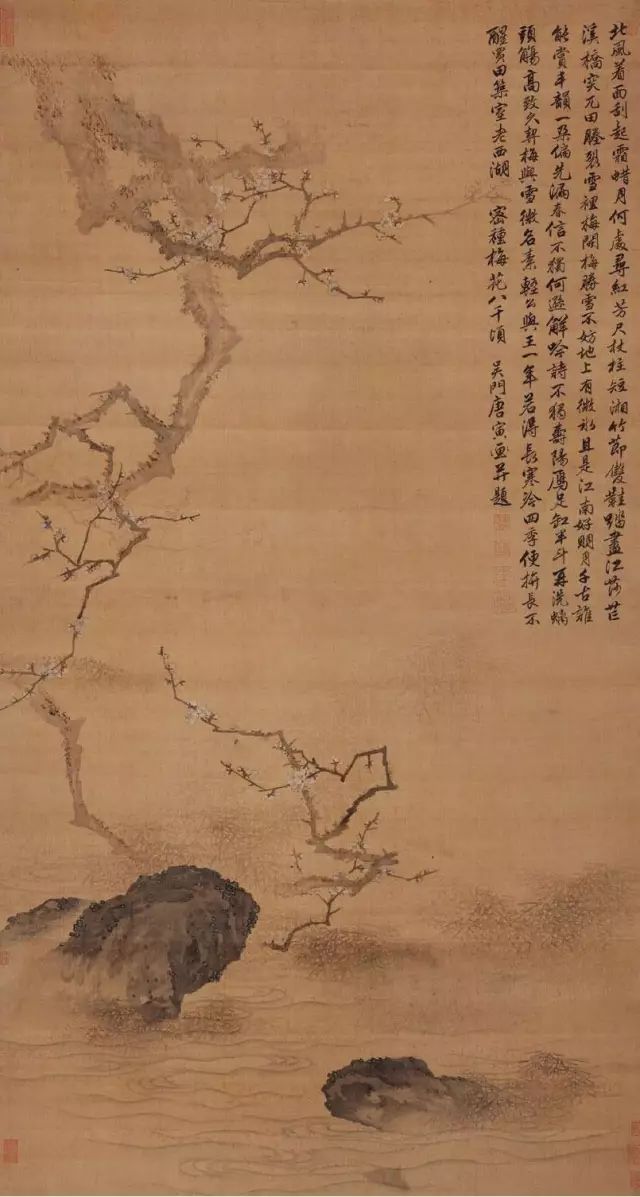 北風着面刮起霜蜡月何處尋紅芳尺杖柱短湘竹節雙鞋踏盡江莎芒
溪橋突兀田塍裂雪裡梅開梅勝雪不妨地上有微冰且是江南好明月千古誰
能賞丰韻一朶偏先漏春信不獨何遜解吟詩不獨壽陽
足缸半斗再洗
頭觴高致久契梅與雪微名素輕公與王一年若得長寒冷四季便拚長不
醒買田築室老西湖密種梅花八千頃吳門唐寅画并題